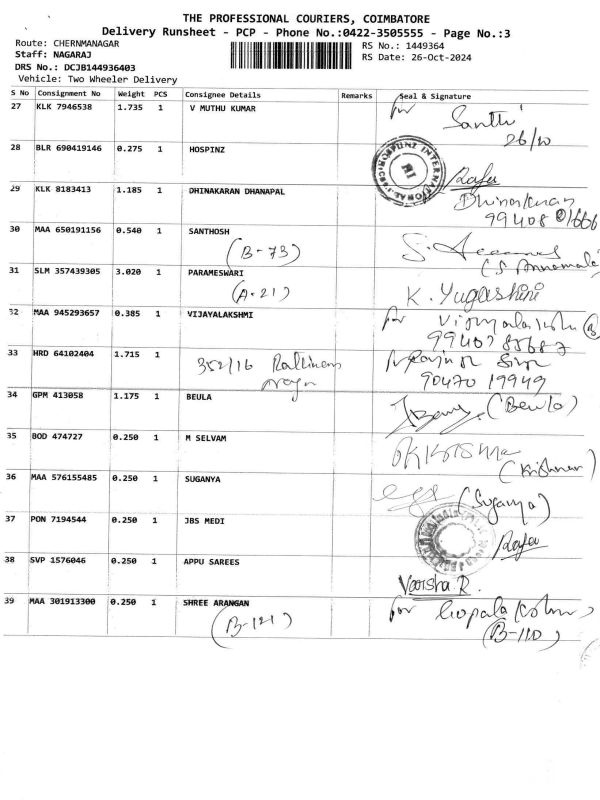 THE PROFESSIONAL COURIERS, COIMBATORE
Delivery Runsheet - PCP - Phone No.:0422-3505555 - Page No.:3
Route: CHERNMANAGAR RS No.: 1449364
Staff: NAGARAJ RS Date: 26-Oct-2024
DRS No.: DCJB144936403
Vehicle: Two Wheeler Delivery
S No Consignment No Weight PCS Consignee Details Remarks Seal & Signature
27 KLK 7946538 1.735 1 V MUTHU KUMAR for Santhi
26/10
28 BLR 690419146 0.275 1 HOSPINZ Rafu
29 KLK 8183413 1.185 1 DHINAKARAN DHANAPAL
99408 01666
30 MAA 650191156 0.540 1 SANTHOSH
(B-73)
31 SLM 357439305 3.020 1 PARAMESWARI K. Yugashini
(A-21)
32 MAA 945293657 0.385 1 VIJAYALAKSHMI for
33 HRD 64102404 1.715 1 352/16
90470 19949
34 GPM 413058 1.175 1 BEULA (Beula)
35 BOD 474727 0.250 1 M SELVAM
36 MAA 576155485 0.250 1 SUGANYA
(Suganya)
37 PON 7194544 0.250 1 JBS MEDI Rafu
38 SVP 1576046 0.250 1 APPU SAREES Varsha R.
39 MAA 301913300 0.250 1 SHREE ARANGAN for
(B-121) (B-110)